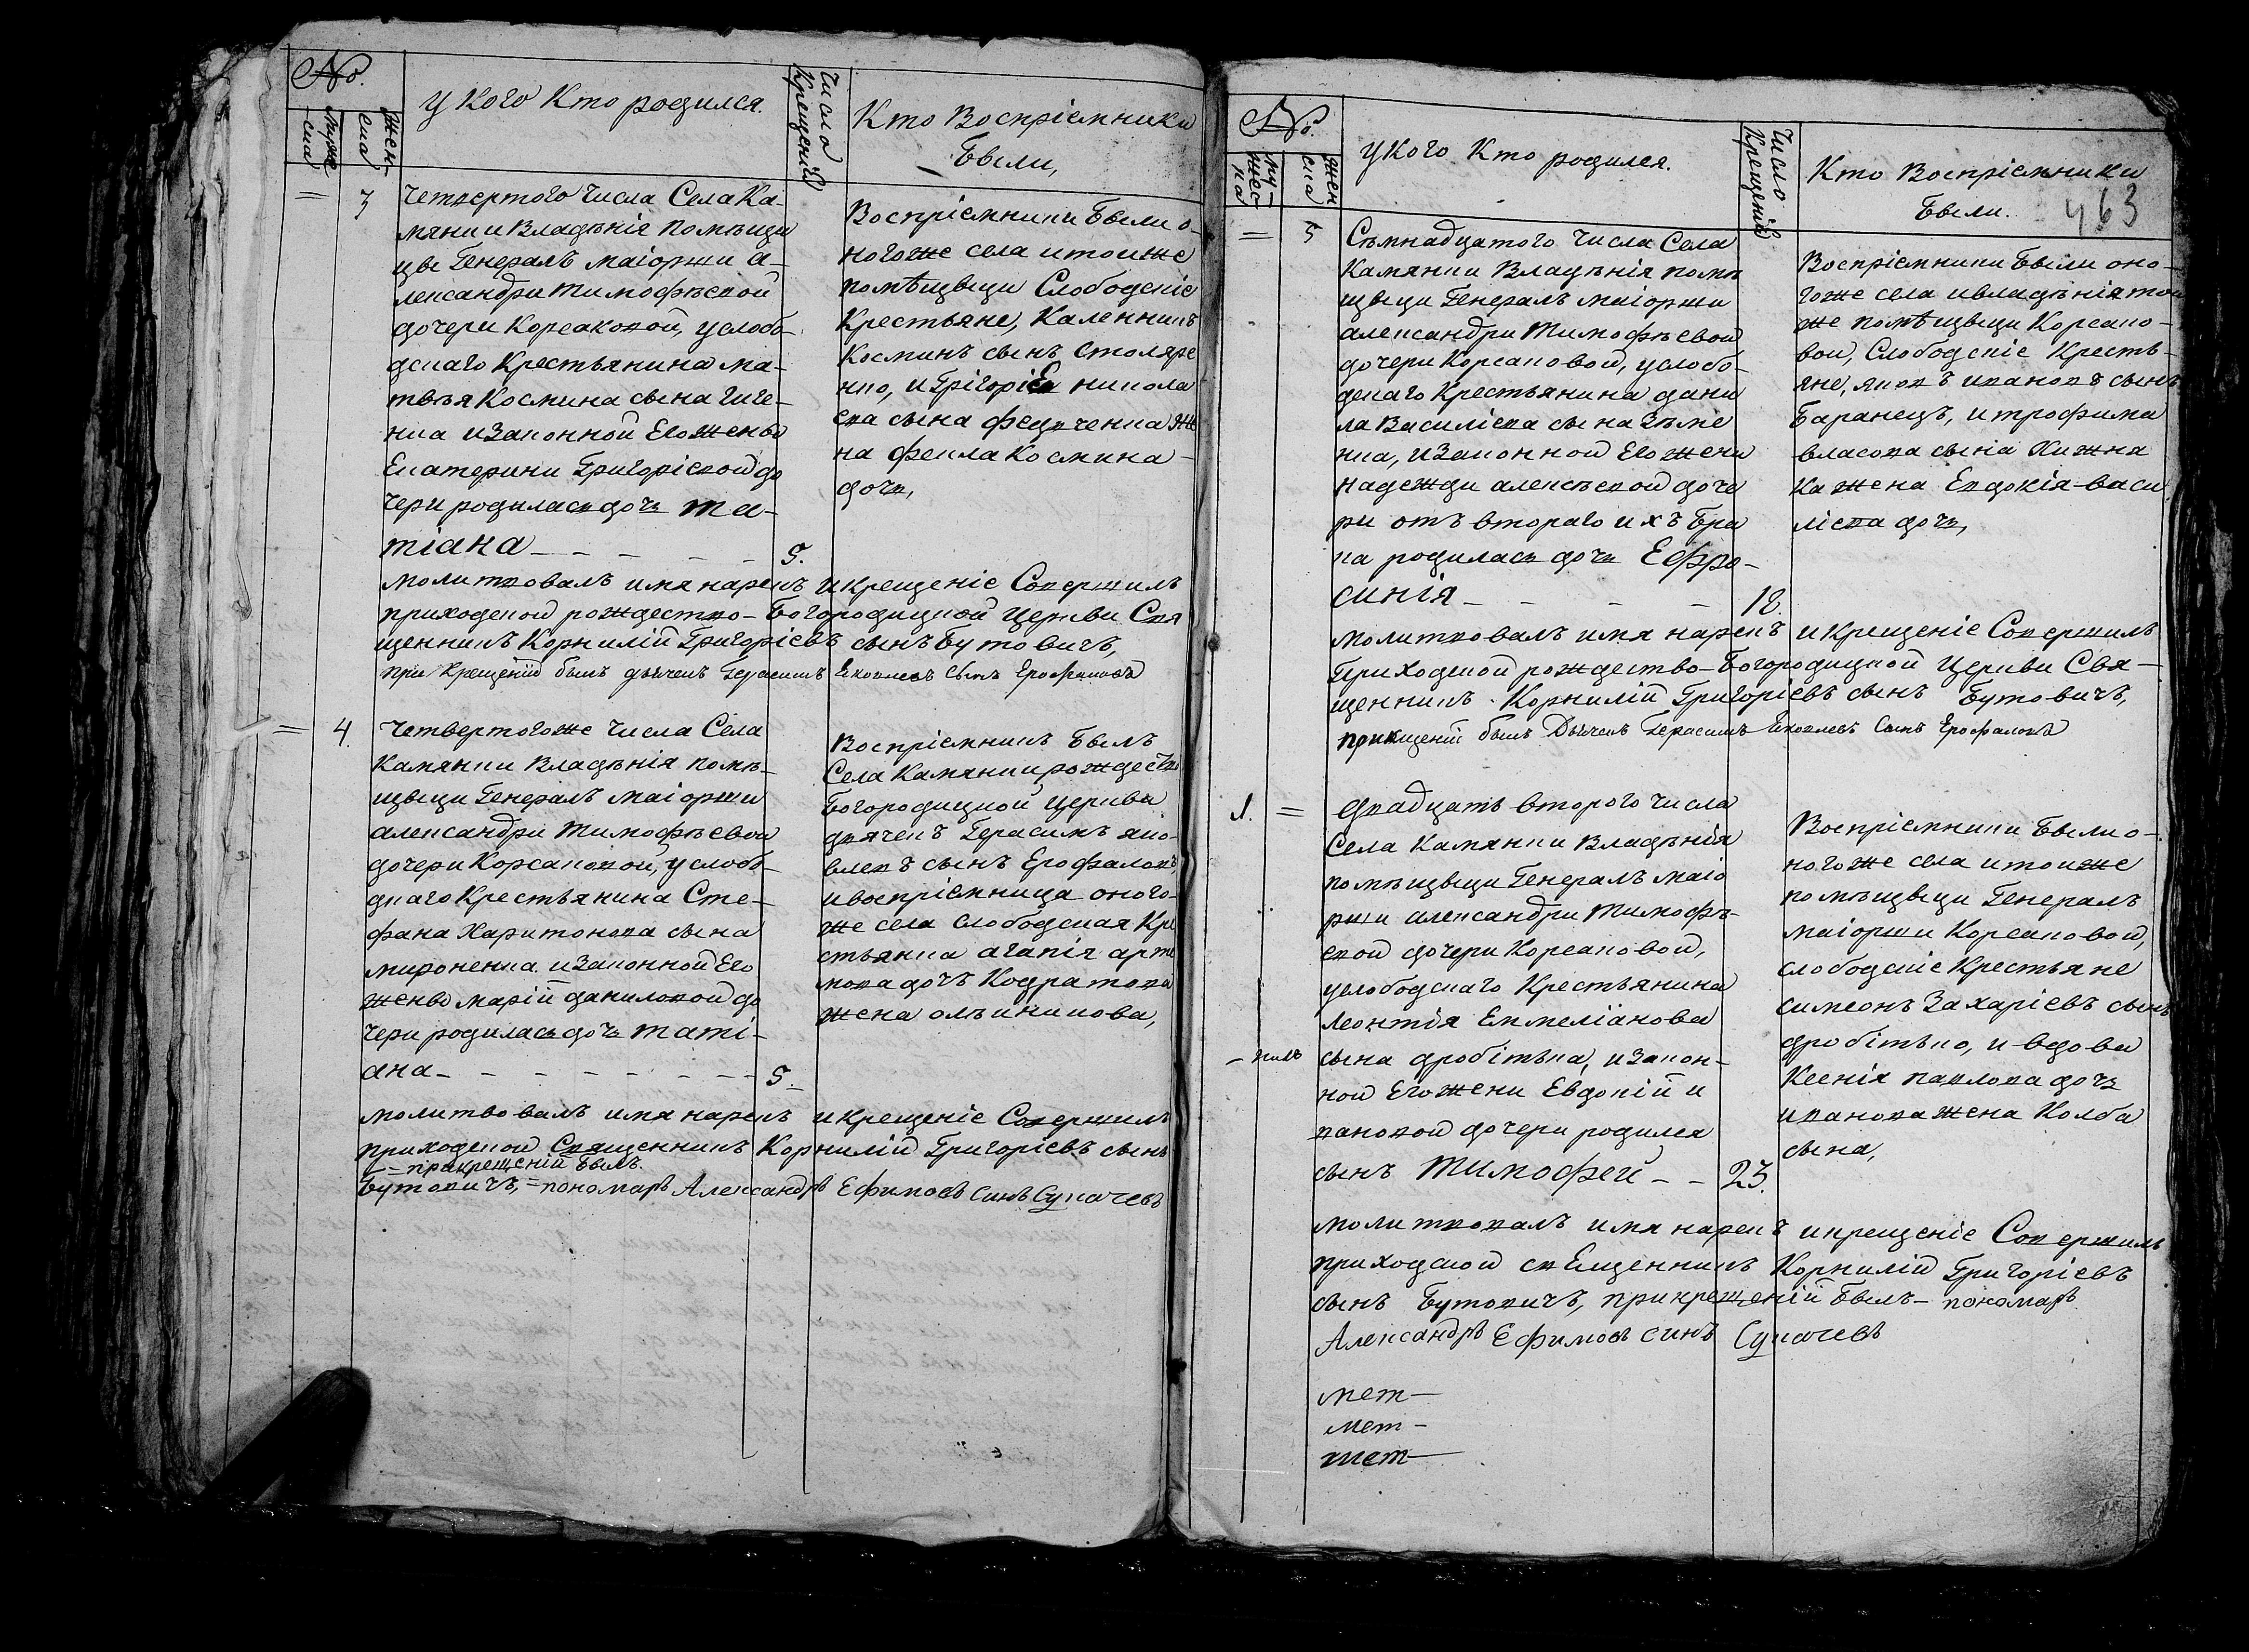 №.
муже
ска
жен-
ска
У Кого Кто родился.
Числа
Крещеній
Кто Воспріемники
Были,
=
3
Четвертого Числа Села Ка-
мянки Владѣнія Помѣщи
цы Генералъ маіорши а-
лександри Тимофѣевой
дочери Корсаковой, услобо-
дскаго Крестьянина ма-
твѣя Космина сына Гиче-
нка изаконной Его Жены
Екатерини Григоріевой до
чери родилась дочъ Та-
тіана
5.
Воспріемники Были о-
ногоже села итоиже
помѣщыци Слободскіе
Крестьяне, Каленникъ
Косминъ сынъ Столяре
нко, и Григоріа никола
ева сына федченка же
на фекла Космина
дочь,
молитвовалъ имя нарекъ и крещеніе Совершилъ
приходской рождество-Богородицкой Церкви Свя
щенникъ Корнилій Григоріевъ сынъ Бутовичъ,
при Крещеніи былъ дьячекъ Герасимъ Яковлевъ Сынъ Ерофаловъ
=
4.
Четвертогоже Числа Села
Камянки Владѣнія помѣ-
щыци Генералъ маіорши
александри Тимофѣевои
дочери Корсаковой, услобо-
дкаго Крестьянина Сте-
фана Харитонова сына
мироненка изаконной Его
жены маріи даниловой до
чери родилась дочь Таті-
ана
5.
Воспріемникъ Былъ
Села Камянки рождество
Богородицкой Церкви
дьячекъ Герасимъ яко-
влевъ сынъ Ерофаловъ,
и воспріемница оного-
же села слободская Кре
стьянка агапія арте
мова дочъ Кодратова
жена олѣиникова,
молитвовалъ имя нарекъ и крещеніе Совершилъ
приходской Священникъ Корнилій Григоріевъ сынъ
= прикрещеній Былъ
Бутовичъ, = пономаръ Александръ Ефимовъ синъ Сукачевъ
№.
му-
жес
ка
жен
ска
У Кого Кто родился.
Число
Крещеній
Кто Воспріемники
Были.
463
=
5
Съмнадцатого Числа Села
Камянки Владѣнія помѣ
щыци Генералъ маіорши
александри Тимофѣевой
дочери Корсаковой, услобо-
дскаго Крестьянина дани
ла Василіева сына Зѣне
нка, изаконной Его жени
надежди алексѣевой доче
ри отъ втораго ихъ Бра
ка родилась дочь Ефро-
синія
18.
Воспріемники Были оно-
гоже села ивладѣнія тои
же помѣщыци Корсако-
вои, Слободскіе Кресть-
яне, яковъ ивановъ сынъ
Баранецъ, и трофима
власова сына Хижня
ка жена Евдокія васи
ліева дочь,
молитвовалъ имя нарекъ и крещеніе Совершилъ
Приходской рождество-Богородицкой Церкви Свя-
щенникъ Корнилій Григоріевъ сынъ Бутовичъ,
прикщеній былъ Дьячекъ Герасимъ Яковлевъ Сынъ Ерофаловъ
1.
=
Двадцать второго числа
Села Камянки Владѣнія
помѣщыци Генералъ маіо
рши александри Тимофѣ-
евой дочери Корсаковой,
услободского Крестьянина
Леонтія Еммеліанова
сына дробітька, изакон-
ной Его жени Евдокій и
вановой дочери родился
сынъ Тимофей
23.
Воспріемники Были о-
ногоже села итоиже
помѣщыци Генералъ
маіорши Корсаковой,
слободскіе Крестьяне
симеонъ Захаріевъ сынъ
дробітько, и вдова
Ксенія павлова дочь
иванова жена Колба
сына,
молитвовалъ имя нарекъ и крещеніе Совершилъ
приходской свЕщенникъ Корнилій Григоріевъ
сынъ Бутовичъ, прикрещеній Былъ- пономаръ
Александръ Ефимовъ синъ Сукачевъ